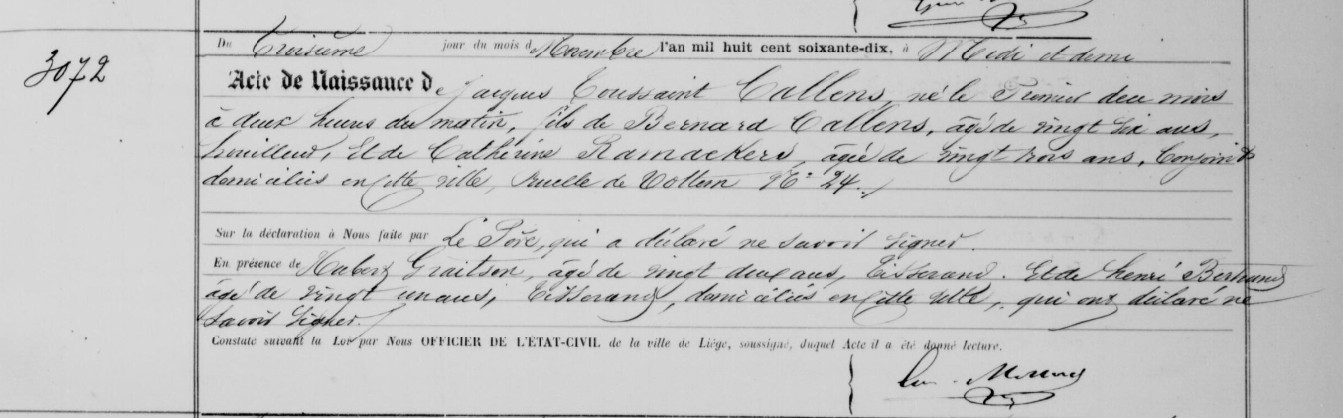 3072
Du troisième jour du mois de Novembre l'an mil huit cent soixante-dix, à Midi et demi
Acte de Naissance de Jacques Toussaint Callens, né le Premier de ce mois
à deux heures du matin, fils de Bernard Callens, âgé de vingt six ans,
houilleur, et de Catherine Ramackers, âgée de vingt trois ans, Conjoints
domiciliés en cette ville, ruelle de Vottem N° 24.
Sur la déclaration à Nous faite par Le Père, qui a déclaré ne savoir signer.
En présence de Hubert Graitson, âgé de vingt deux ans, Tisserand. Et de henri Bertrand
âgé de vingt un ans, Tisserand, domiciliés en cette ville, qui ont déclaré ne
savoir signer.
Constaté suivant la Loi par Nous OFFICIER DE L'ÉTAT-CIVIL de la ville de Liége, soussigné, duquel Acte il a été donné lecture.